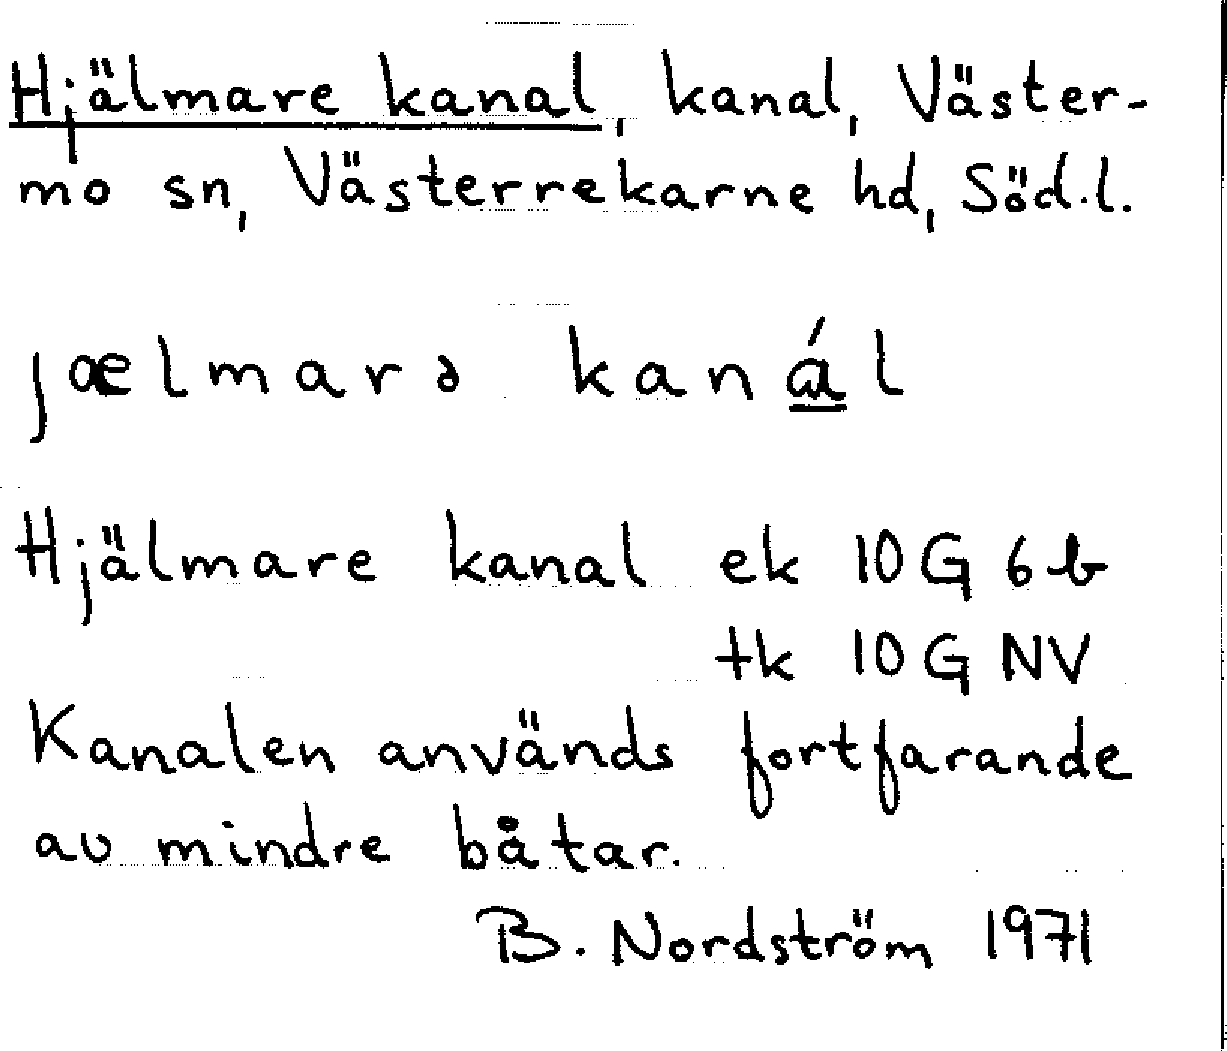 Hjälmare kanal, kanal, Väster-
mo sn, Västerrekarne hd, Söd.l.
jælmarə kanál
Hjälmare kanal ek 10G 6b
tk 10G NV
Kanalen används fortfarande
av mindre båtar.
B. Nordström 1971